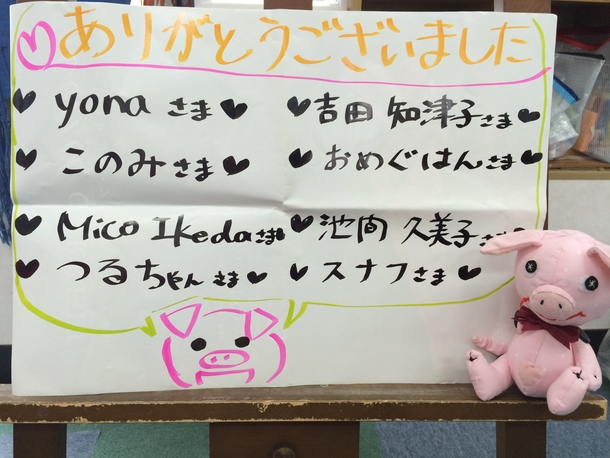 ありがとうございました
yonaさま
吉田 知津子さま
このみさま
おめぐはんさま
Mico Ikedaさま
池間 久美子さま
つるちゃんさま
スナフさま